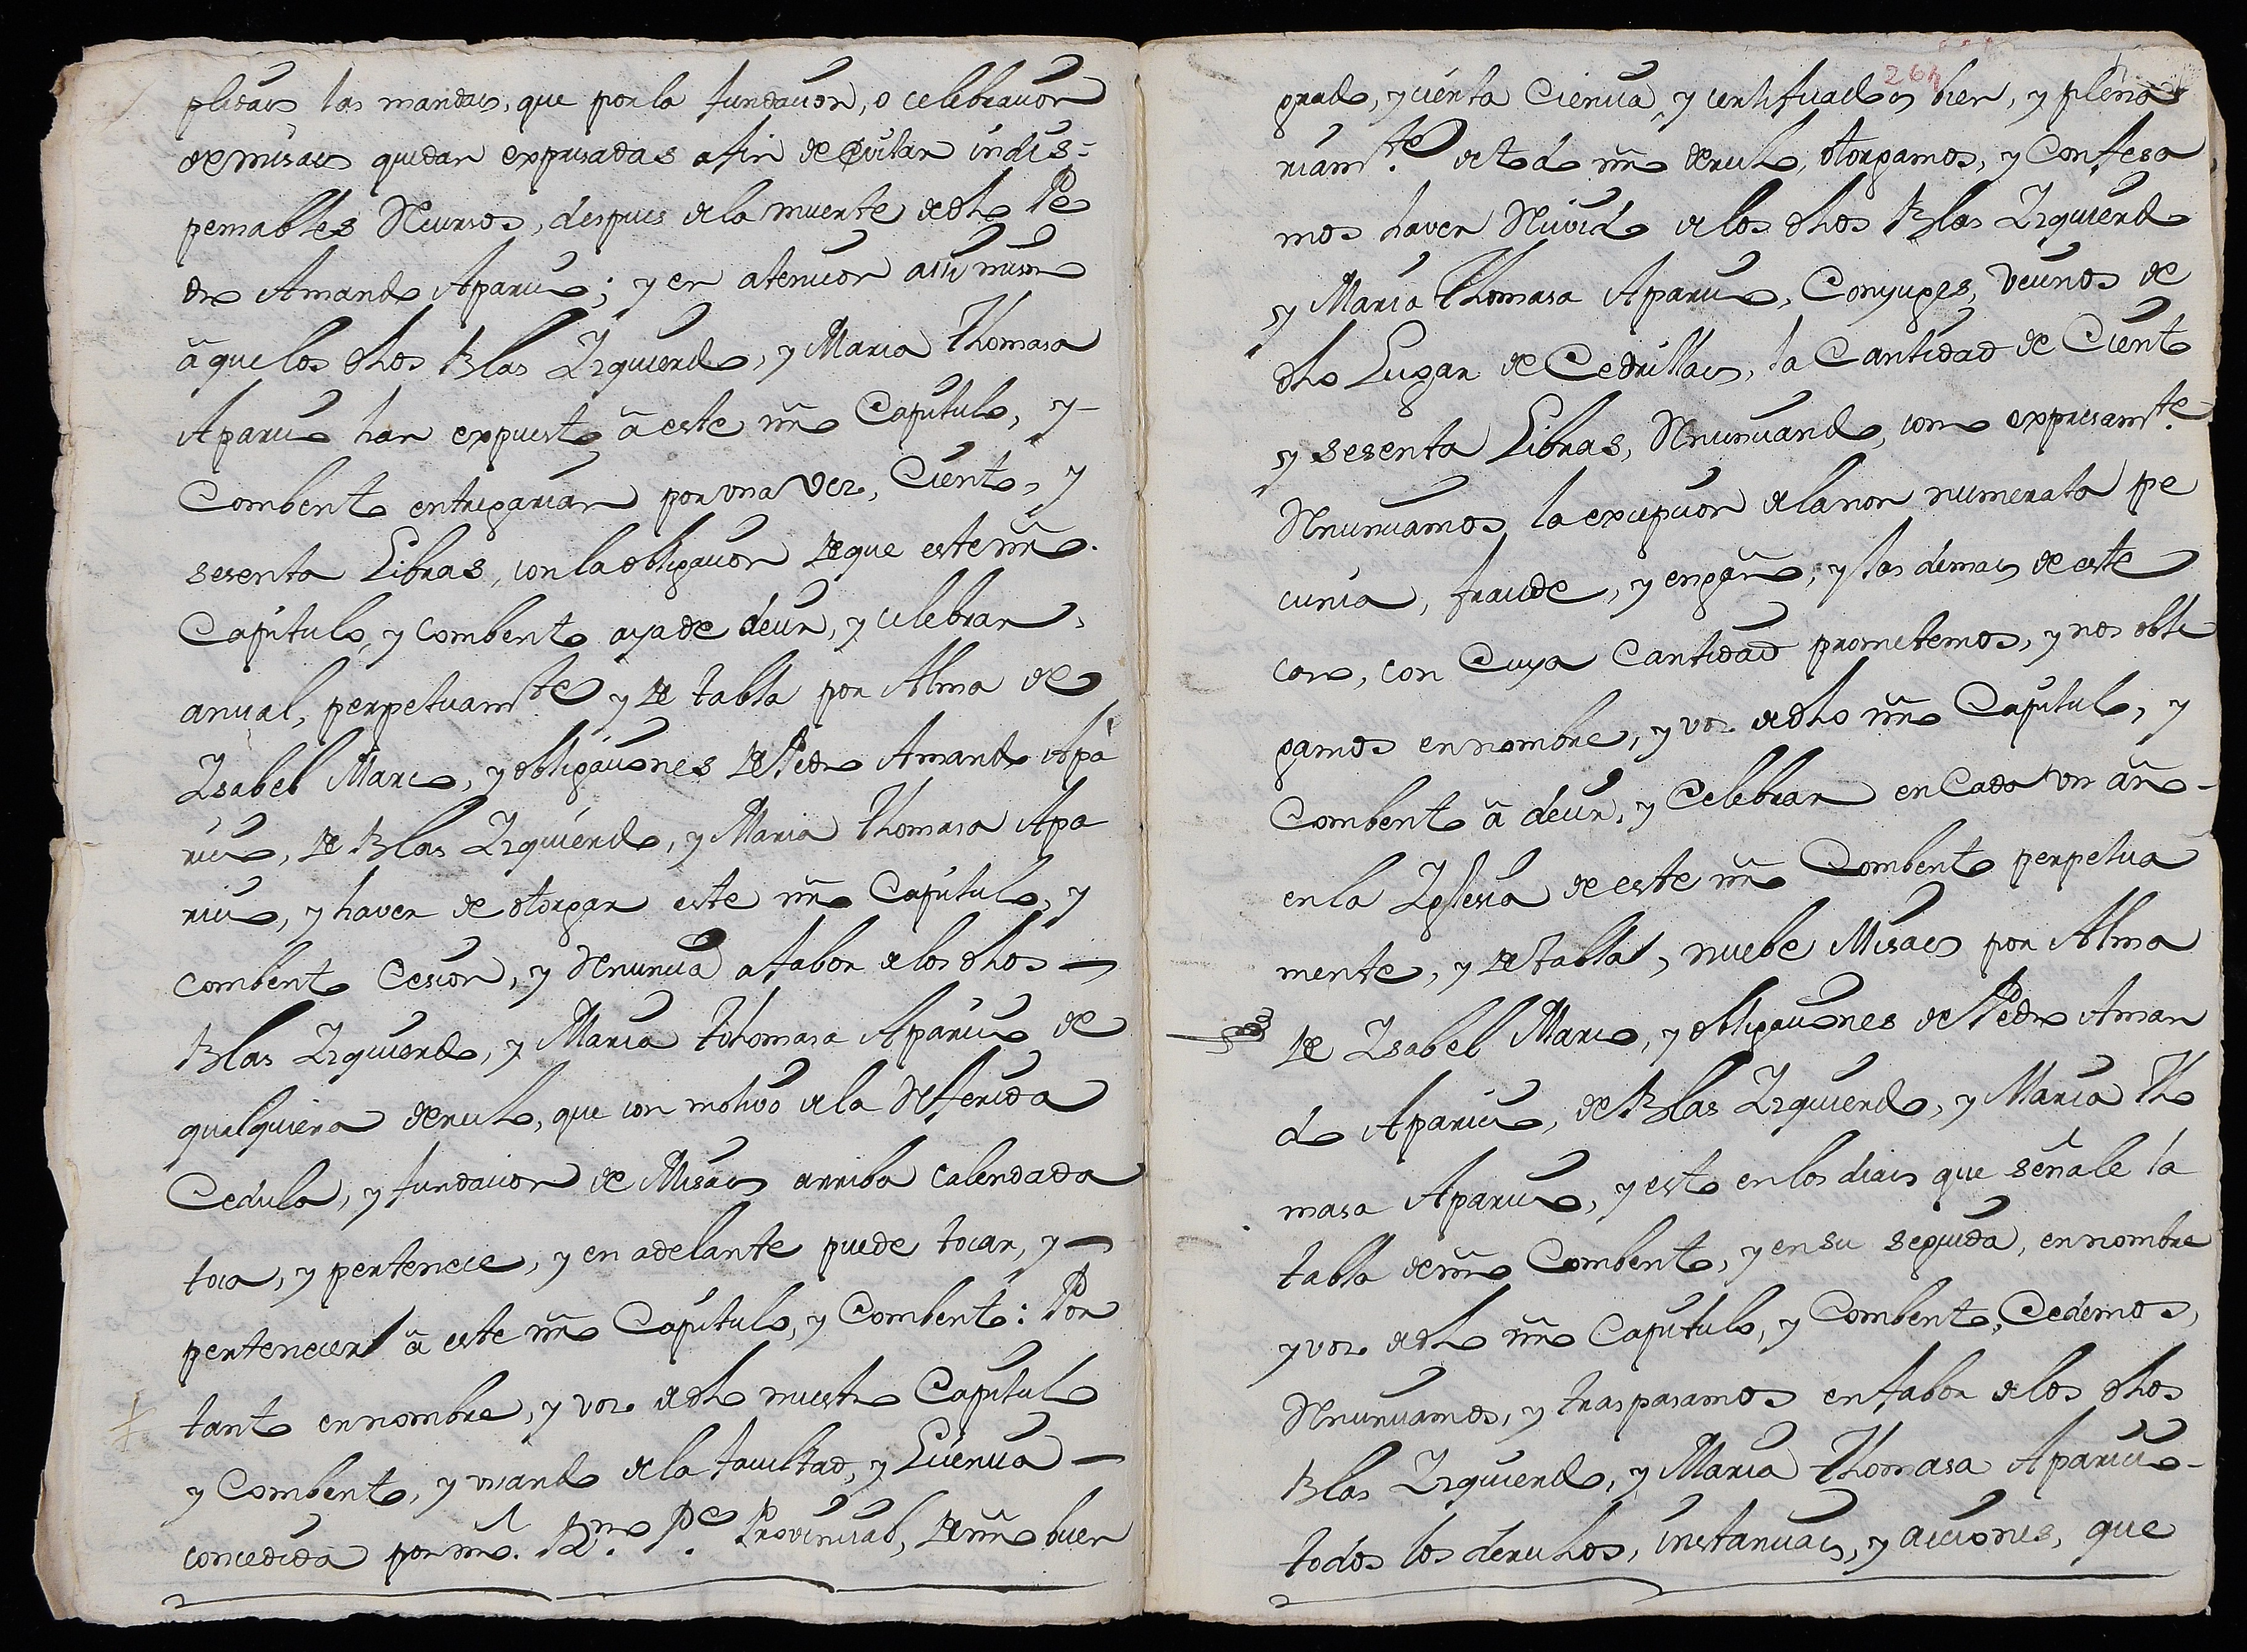 plidas las mandas, que por la fundacion, o celebracion
de misas quedan expresadas a fin de evitar indis=
pensables Recursos, despues de la muerte de dho Pe
dro Amando Aparicio; y en atencion assi mismo
â que los dhos Blas Izquierdo, y Maria Thomasa
Aparicio han expuesto â este nro Capitulo, y
Combento entregarian por una vez, Ciento, y
sesenta Libras, con la obligacion de que este nro.
Capitulo, y Combento aya de decir, y celebrar,
anual, perpetuamte y de tabla por Alma de
Isabel Marco, y obligaciones de Pedro Amando Apa
ricio, de Blas Izquierdo, y Maria Thomasa Apa
ricio, y haver de otorgar este nro Capitulo, y
combento Cesion, y Renuncia a fabor de los dhos
Blas Izquierdo, y Maria Thomasa Aparicio de
qualquiera derecho, que con motivo de la Referida
Cedula, y fundacion de Misas arriba calendada
toca, y pertenece, y en adelante puede tocar, y
pertenecer â este nro Capitulo, y Combento: Por
tanto en nombre, y voz de dho nuestro Capitulo
y Combento, y usando de la facultad, y Licencia
concedida por nro. Rmo. Pe. Provincial, de nro buen
264
grado, y cierta Ciencia, y certificados bien, y plena
riamte. de todo nro derecho, otorgamos, y Confesa
mos haver Recivido de los dhos Blas Izquierdo
y Maria Thomasa Aparicio, Conyuges, vecinos de
dho Lugar de Cedrillas, la Cantidad de Ciento
y sesenta Libras, Renunciando, como expresamte.
Renunciamos la excepcion de la non numerata pe
cunia, fraude, y engaño, y las demas de este
caso, con Cuya Cantidad prometemos, y nos obli
gamos en nombre, y voz de dho nro Capitulo, y
Combento â decir, y Celebrar en Cada un año
en la Iglesia de este nro Combento perpetua
mente, y de tabla, nuebe Misas por Alma
de Isabel Marco, y obligaciones de Pedro Aman
do Aparicio, de Blas Izquierdo, y Maria Tho
masa Aparicio, y esto en los dias que señale la
tabla de nro Combento, y en su seguida, en nombre
y voz de dho nro Capitulo, y Combento, Cedemos,
Renunciamos, y traspasamos en fabor de los dhos
Blas Izquierdo, y Maria Thomasa Aparicio
todos los derechos, instancias, y acciones, que